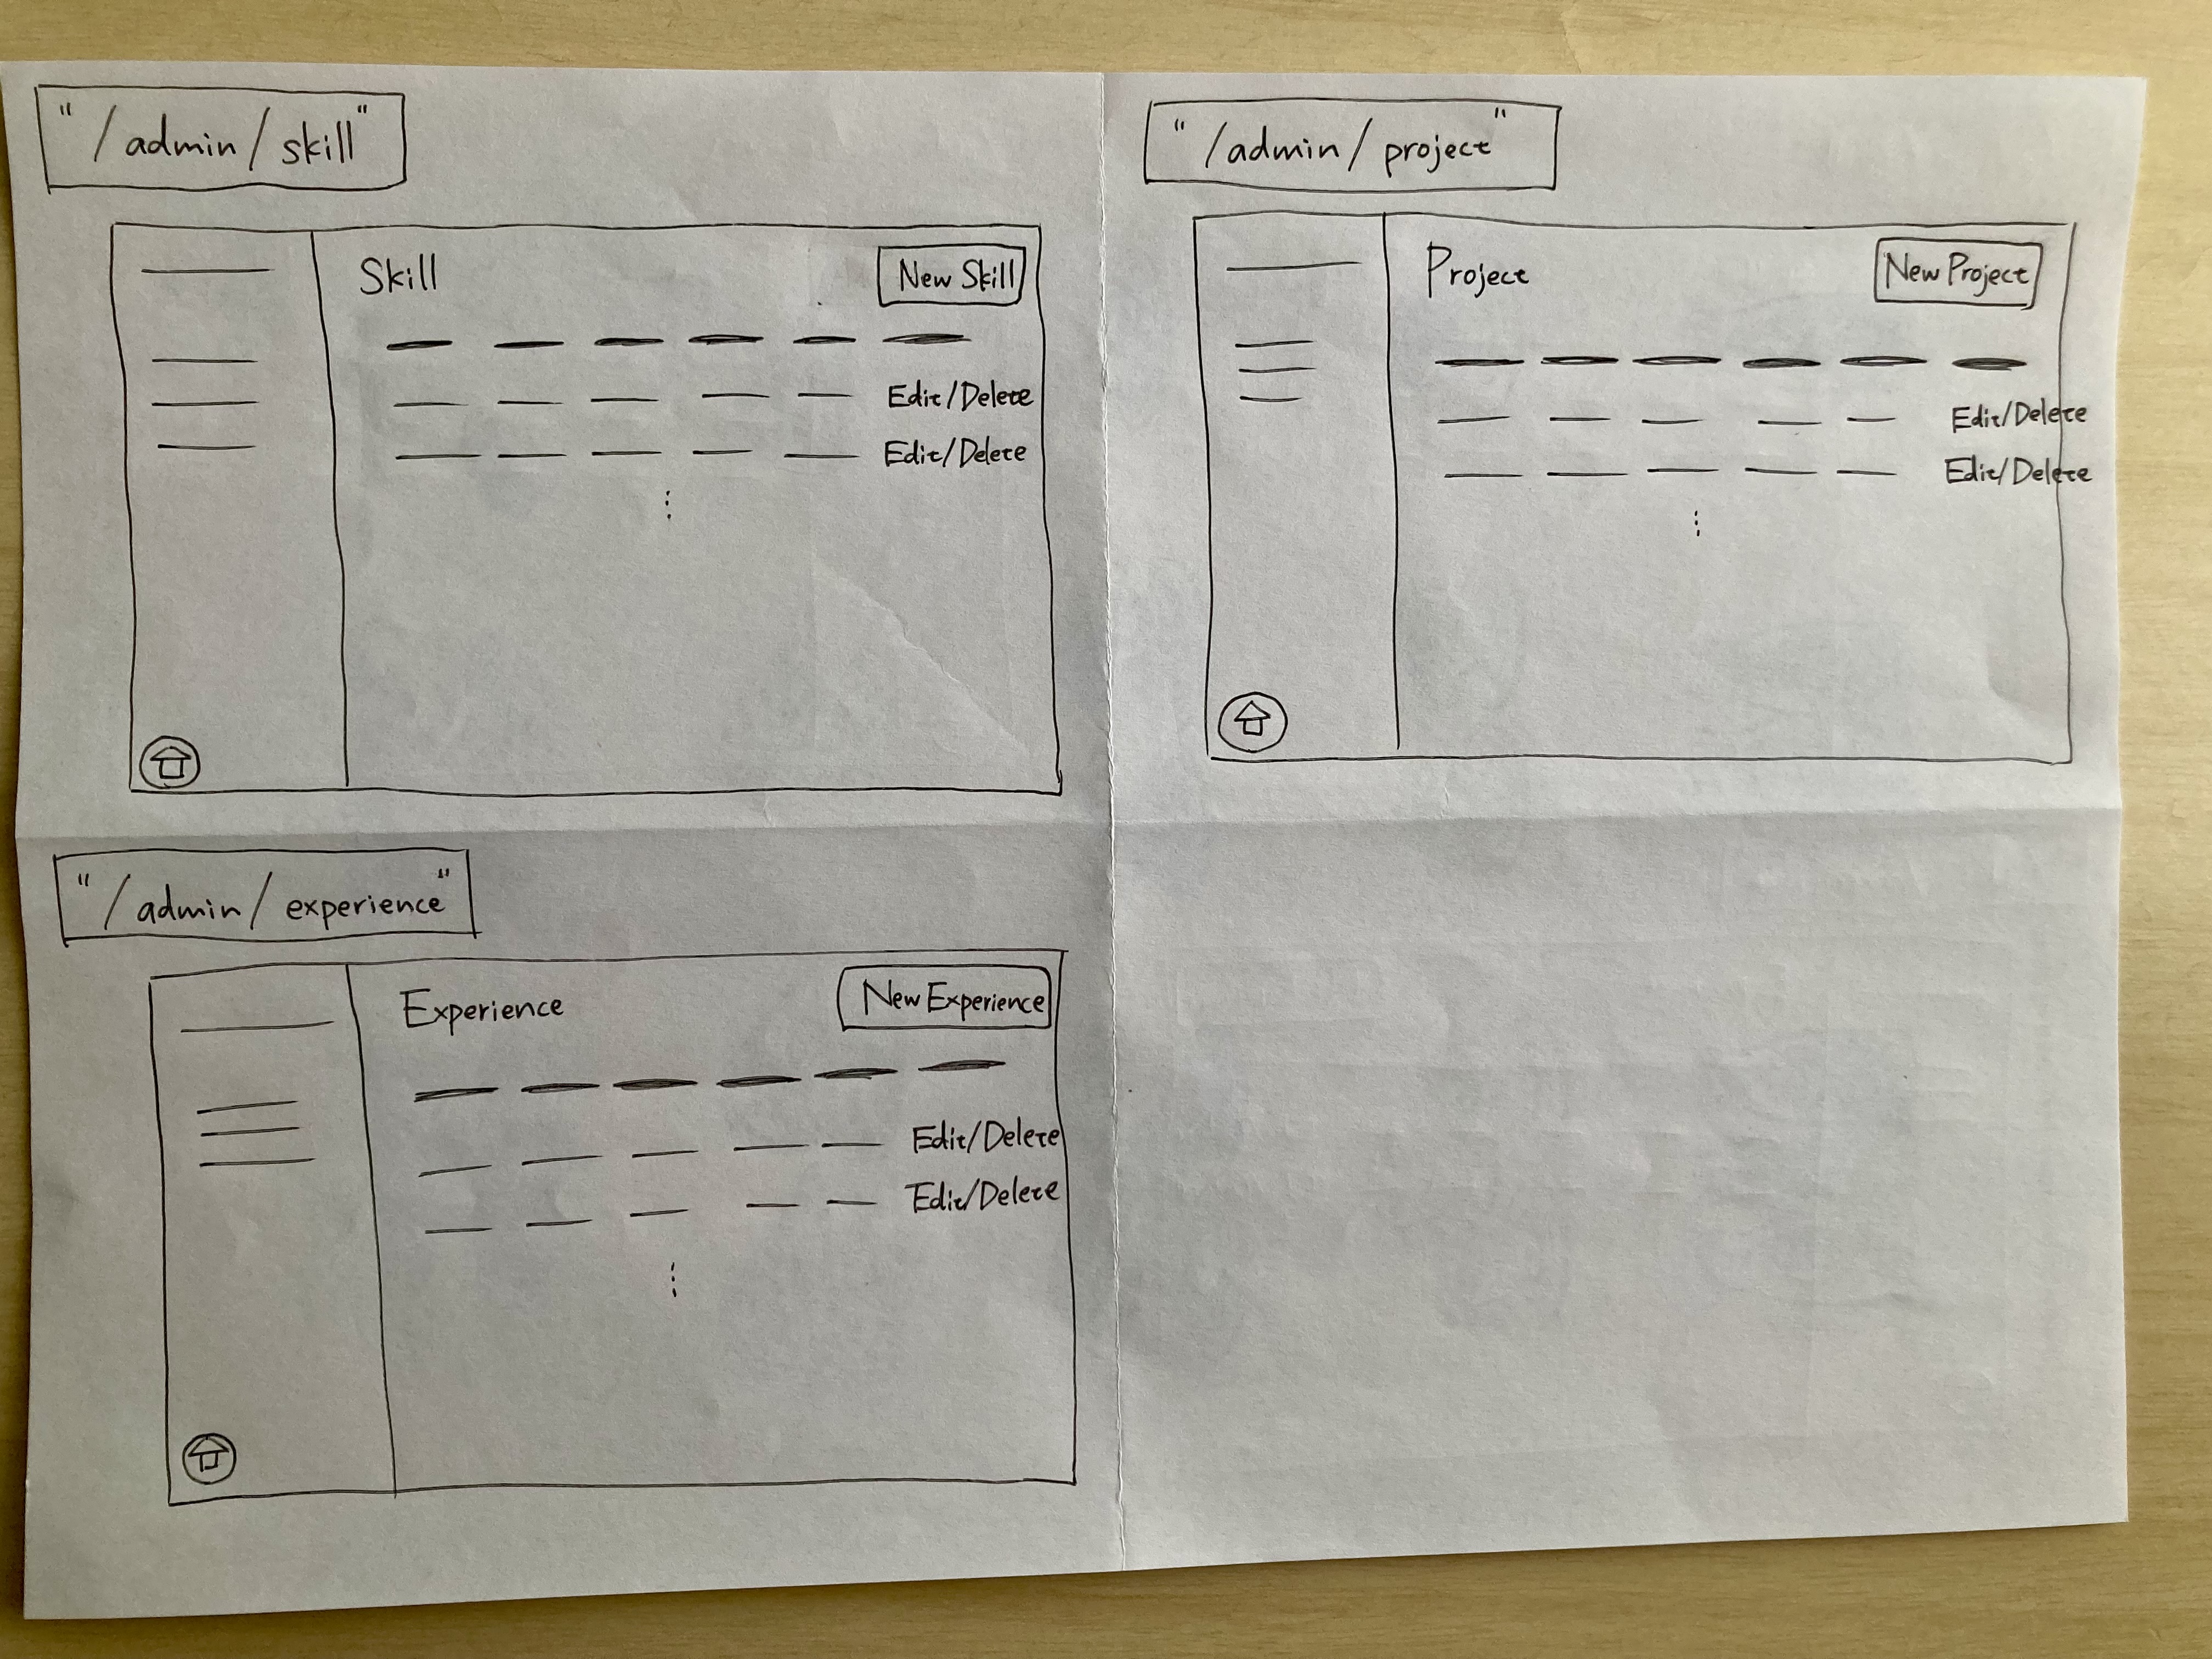 "/admin/skill"
Skill
New Skill
Edit/Delete
Edit/Delete
"/admin/project"
Project
New Project
Edit/Delete
Edit/Delete
"/admin/experience"
Experience
New Experience
Edit/Delete
Edit/Delete